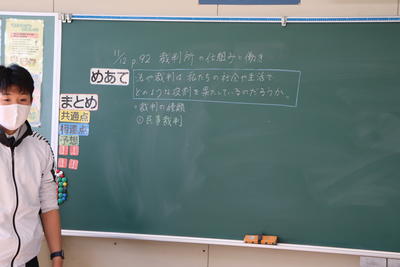 11/12 p.92 裁判所の仕組みと働き
めあて
法や裁判は私たちの社会や生活で
どのような役割を果たしているのだろうか。
まとめ
・裁判の種類
共通点
①民事裁判
相違点
予想